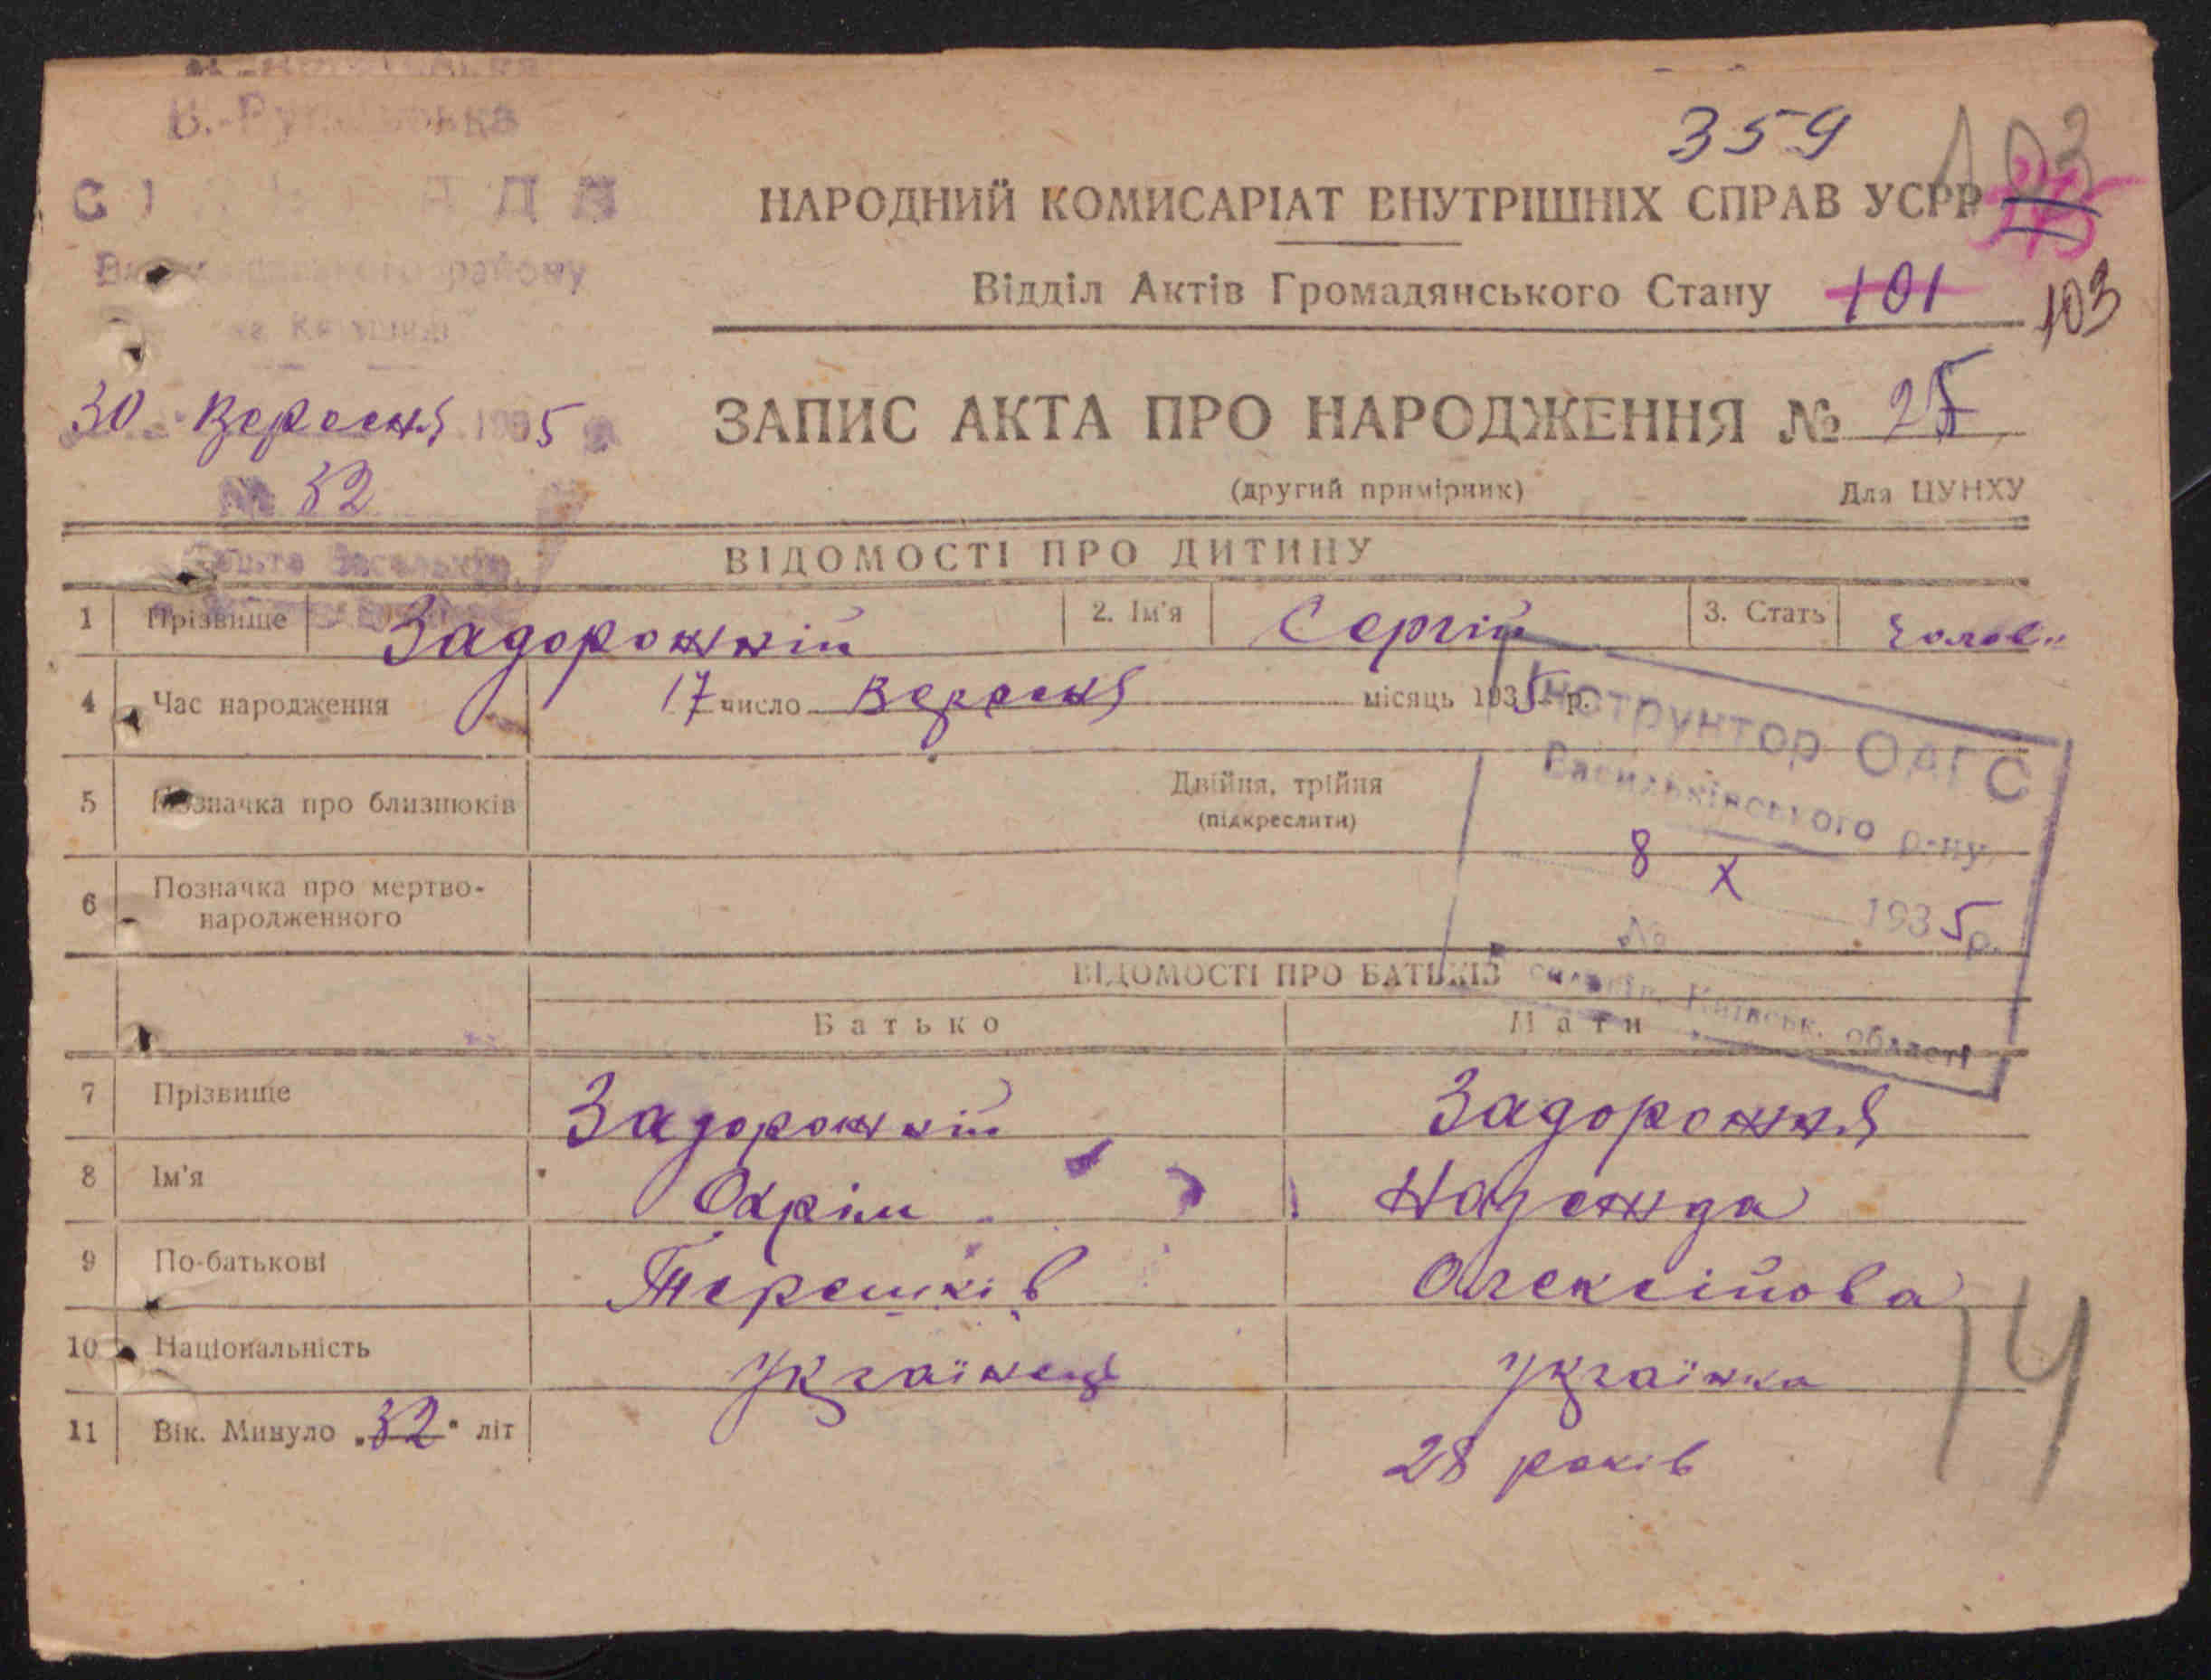 359
103
НАРОДНИЙ КОМИСАРІАТ ВНУТРІШНІХ СПРАВ УСРР
Відділ Актів Громадянського Стану 101 103
СІЛЬРАДА
району
30 Вересня 1935
№ 52
ЗАПИС АКТА ПРО НАРОДЖЕННЯ №
(другий примірник) Для ЦУНХУ
ВІДОМОСТІ ПРО ДИТИНУ
1 Прізвище Задорожній 2. Ім'я Сергій 3. Стать Чолов.
4 Час народження 17 число Вересня місяць 1935 р.
Інструктор ОАГС
Васильківського р-ну
8 X 1935 р.
№
Київськ. області
5 Позначка про близнюків Двійня, трійня
(підкреслити)
6 Позначка про мертво-
народженного
ВІДОМОСТІ ПРО БАТЬКІВ
Батько Мати
7 Прізвище Задорожній Задорожня
8 Ім'я Охрім Надежда
9 По-батькові Терешків Олексійова
10 Національність Українець Українка
11 Вік. Минуло „32" літ 28 років
14